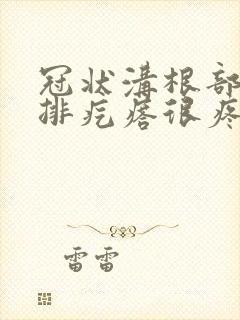 冠状溝根部
排疙瘩很疼
雷雷